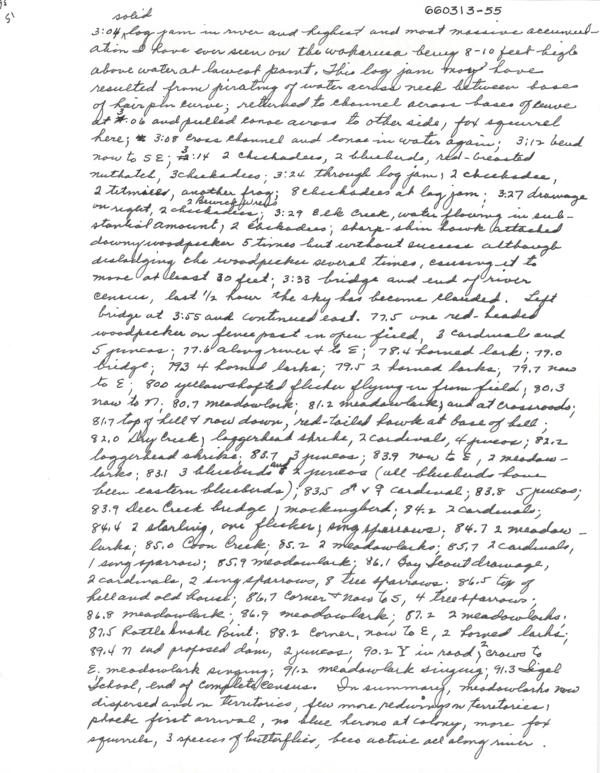 660313-55
solid
3:04 log jam in river and highest and most massive accumul-
ation I have ever seen on the Wakarusa being 8-10 feet high
above water at lowest point. This log jam may have
resulted from pirating of water across neck between bases
of hair pin curve; returned to channel across bases of curve
at 3:06 and pulled canoe across to other side, fox squirrel
here; 3:08 cross channel and canoe in water again; 3:12 bend
now to SE; 3:14 2 chickadees, 2 bluebirds, red-breasted
nuthatch, 3 chickadees; 3:24 through log jam; 2 chickadees,
2 titmice, another frog; 8 chickadees at log jam; 3:27 drainage
on right, 2 chickadees, 2 Bewick wrens; 3:29 Elk Creek, water flowing in sub-
stantial amount; 2 chickadees; sharp-shin hawk attacked
downy woodpecker 5 times but without success although
dislodging the woodpecker several times, causing it to
move at least 30 feet; 3:33 bridge and end of river
census, last 1/2 hour the sky has become clouded. Left
bridge at 3:55 and continued east. 77.5 one red-headed
woodpecker on fence post in open field, 3 cardinals and
5 juncos; 77.6 along river + to E; 78.4 horned lark; 79.0
bridge; 79.3 4 horned larks; 79.5 2 horned larks; 79.7 now
to E; 80.0 yellowshafted flicker flying in from field; 80.3
now to N; 80.7 meadowlark; 81.2 meadowlark, and at crossroads;
81.7 top of hill & now down, red-tailed hawk at base of hill;
82.0 Dry Creek; loggerhead shrike, 2 cardinals, 4 juncos; 82.2
loggerhead shrike; 83.7 3 juncos; 83.9 now to E, 2 meadow-
larks; 83.1 3 bluebirds and 2 juncos (all bluebirds have
been eastern bluebirds); 83.5 ♂ + ♀ cardinal; 83.8 5 juncos;
83.9 Deer Creek bridge; mockingbird; 84.2 2 cardinals;
84.4 2 starling, one flicker, song sparrows; 84.7 2 meadow-
larks; 85.0 Coon Creek; 85.2 2 meadowlarks; 85.7 2 cardinals,
1 song sparrow; 85.9 meadowlark; 86.1 Boy Scout drainage,
2 cardinals, 2 song sparrows, 8 tree sparrows; 86.5 top of
hill and old house; 86.7 corner & now to S, 4 tree sparrows;
86.8 meadowlark; 86.9 meadowlark; 87.2 2 meadowlarks;
87.5 Rattlesnake Point; 88.2 corner, now to E, 2 horned larks;
89.4 N end proposed dam, 2 juncos; 90.2 Y in road, 2 crows to
E. meadowlark singing; 91.2 meadowlark singing; 91.3 Sigel
School, end of complete census. In summary, meadowlarks now
dispersed and on territories, few more redwings on territories;
phoebe first arrival, no blue herons at colony, more fox
squirrels, 3 species of butterflies, bees active all along river.